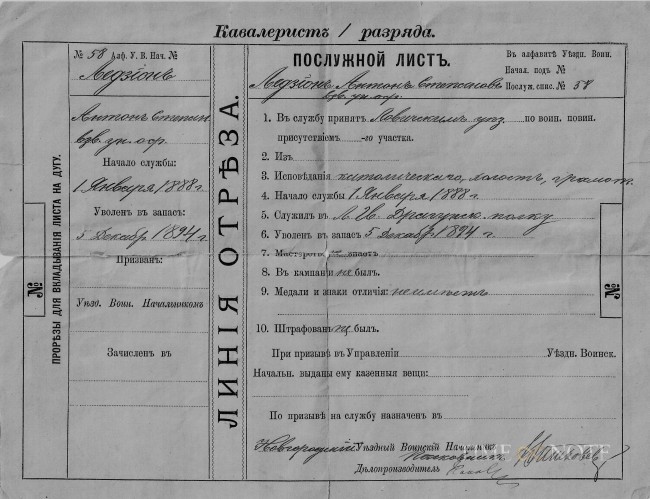 Кавалеристъ I разряда.
ПРОРѢЗЫ ДЛЯ ВКЛАДЫВАНІЯ ЛИСТА НА ДУГУ.
№
№ 58 Алф. У. В. Нач. №
Ледзіонъ
Антонъ Степан.
взв. ун. оф.
Начало службы:
1 Января 1888 г.
Уволенъ въ запасъ:
5 Декабр. 1894 г.
Призванъ:
Уѣзд. Воин. Начальникомъ
Зачисленъ въ
ЛИНІЯ ОТРѢЗА.
ПОСЛУЖНОЙ ЛИСТЪ.
Въ алфавитѣ Уѣздн. Воин.
Начал. подъ №
Послуж. спис. № 58
Ледзіонъ Антонъ Степановъ
взв. ун. оф.
1. Въ службу принятъ Ловичскимъ уѣз. по воин. повин.
присутствіемъ -го участка.
2. Изъ
3. Исповѣданія католическаго, холостъ, грамот.
4. Начало службы 1 Января 1888 г.
5. Служилъ въ Л. Гв. Драгунск. полку
6. Уволенъ въ запасъ 5 Декабр. 1894 г.
7. Мастерство не знаетъ
8. Въ кампаніи не былъ.
9. Медали и знаки отличія: неимѣетъ
10. Штрафованъ не былъ.
При призывѣ въ Управленіи Уѣздн. Воинск.
Начальн. выданы ему казенныя вещи:
По призывѣ на службу назначенъ въ
№
Новгородскій Уѣздный Воинскій Начальникъ
Полковникъ
Дѣлопроизводитель